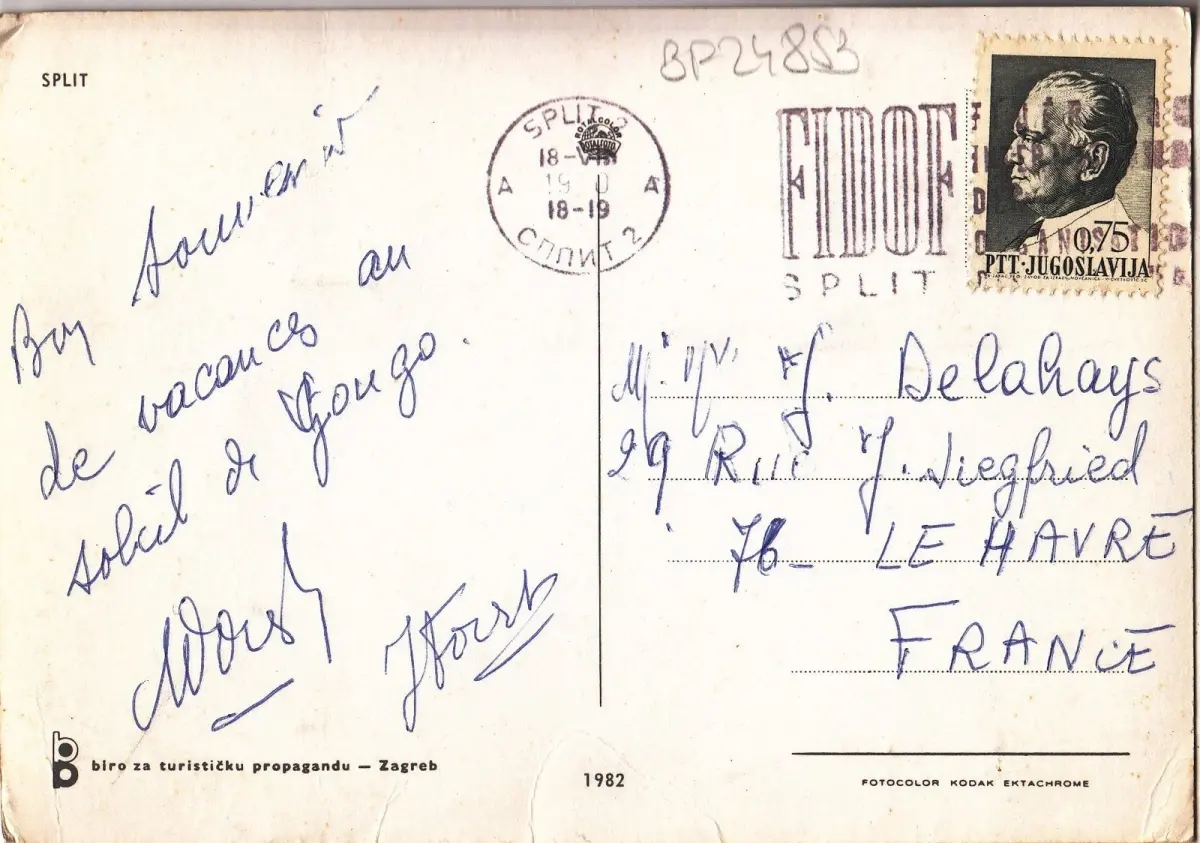 SPLIT
BP24853
SPLIT 2
ROTALCOLOR
18-VIII
18-19
A A
СПЛИТ 2
FIDOF
SPLIT
0,75
PTT·JUGOSLAVIJA
Bon souvenir
de vacances au
soleil de
M. Mme J. Delahays
29 Rue J. Siegfried
76_ LE HAVRE
FRANCE
biro za turističku propagandu — Zagreb
1982
FOTOCOLOR KODAK EKTACHROME